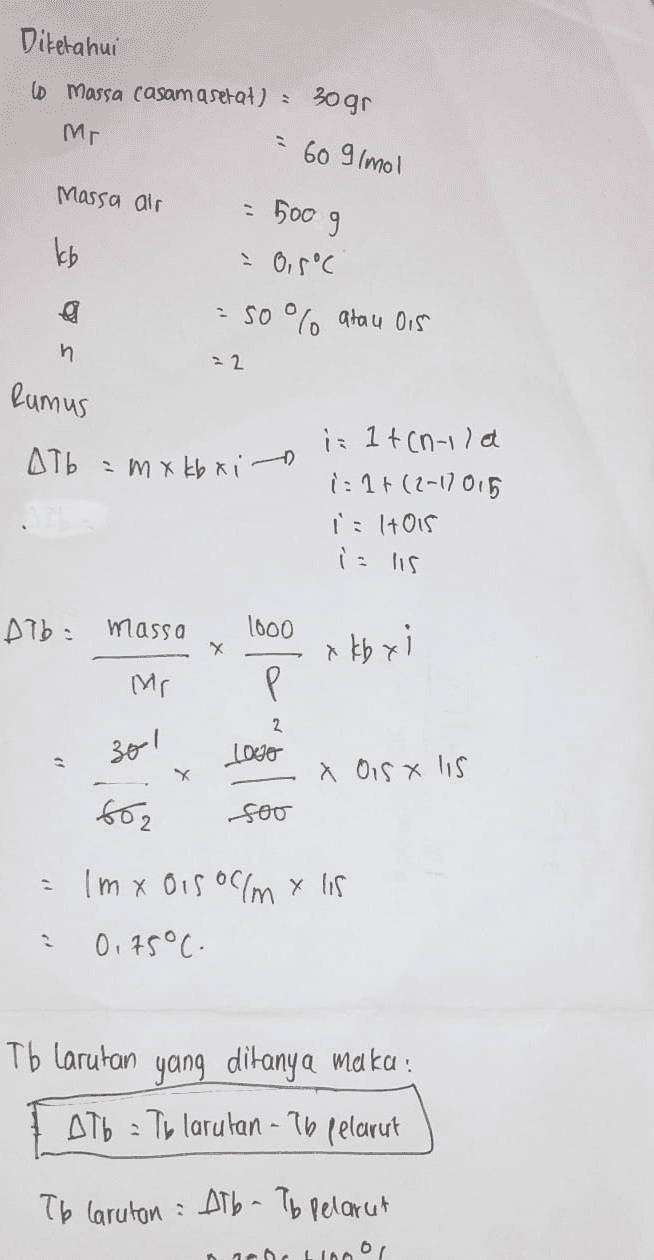 Diketahui
↳ Massa (asam asetat) = 30 gr
Mr = 60 g/mol
Massa air = 500 g
kb = 0,5°C
α = 50 % atau 0,5
n = 2
Rumus
ΔTb = m x kb x i → i = 1 + (n-1) α
i = 1 + (2-1) 0,5
i = 1 + 0,5
i = 1,5
ΔTb = massa/Mr x 1000/P x kb x i
= 30 1/60 2 x 1000 2/500 x 0,5 x 1,5
= 1 m x 0,5 °C/m x 1,5
= 0,75°C.
Tb larutan yang ditanya maka :
ΔTb = Tb larutan - Tb pelarut
Tb larutan = ΔTb - Tb pelarut